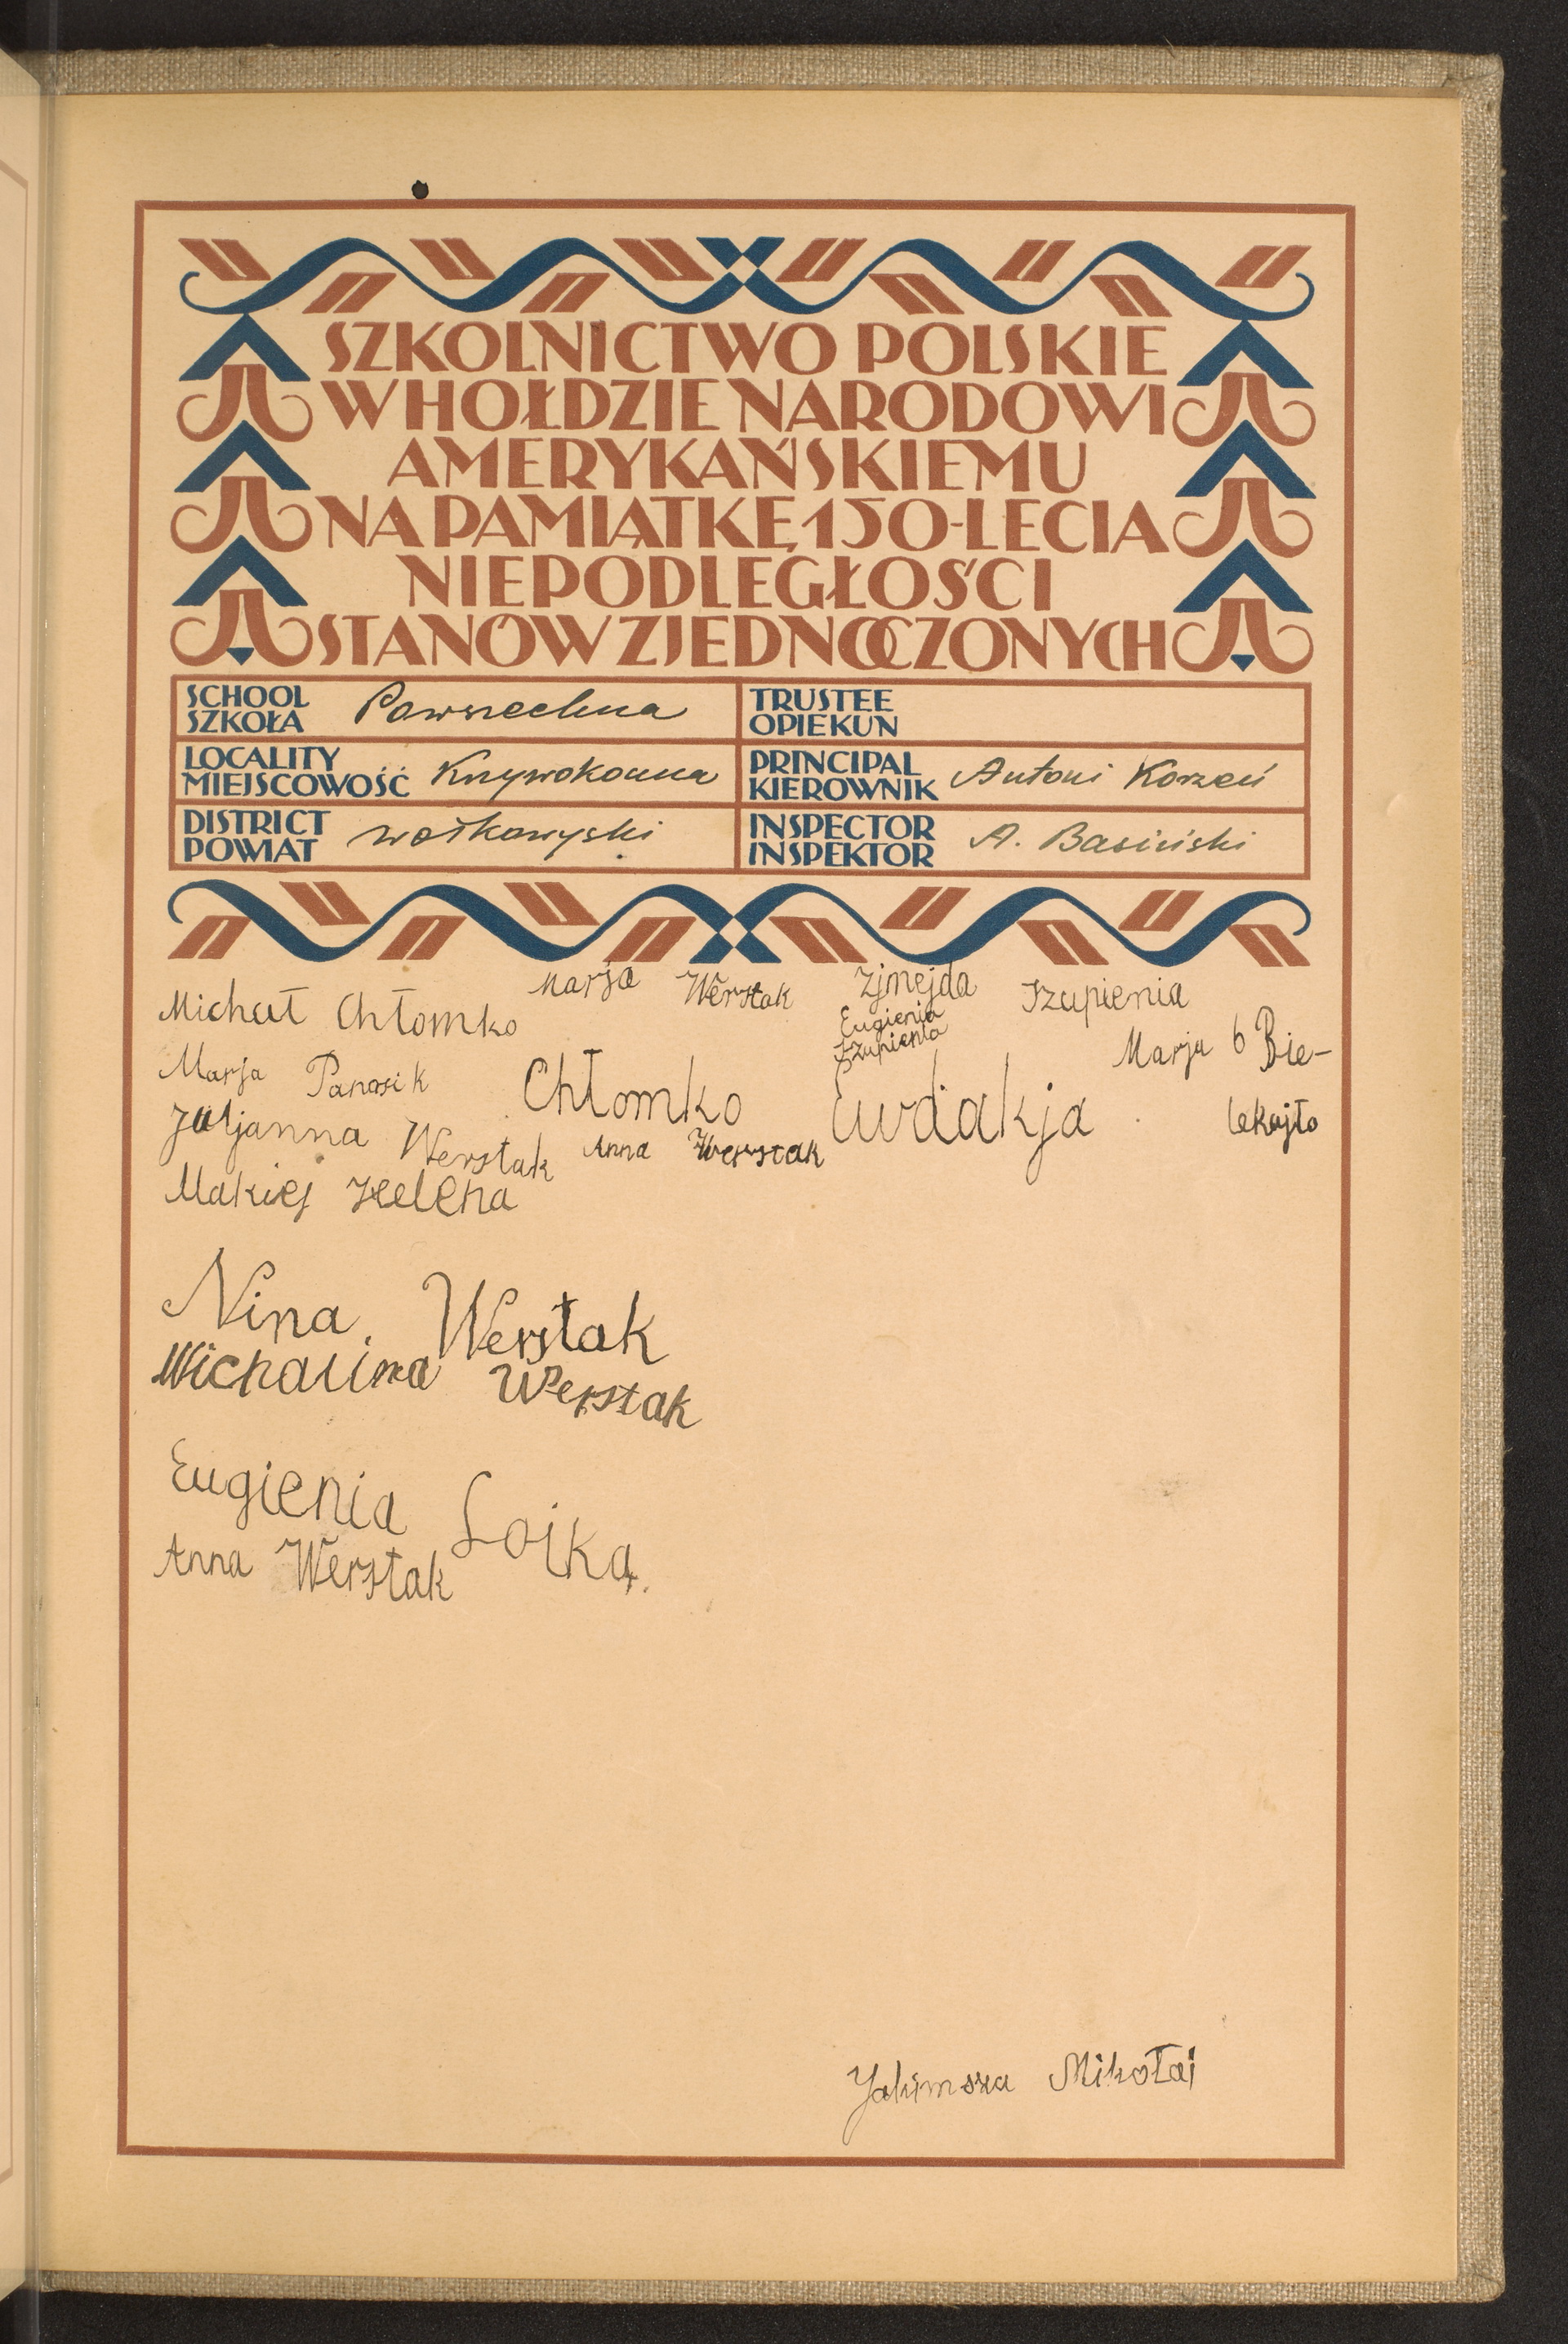 SZKOLNICTWO POLSKIE
W HOŁDZIE NARODOWI
AMERYKAŃSKIEMU
NA PAMIĄTKĘ 150-LECIA
NIEPODLEGŁOŚCI
STANÓW ZJEDNOCZONYCH
SCHOOL
SZKOŁA Powszechna
TRUSTEE
OPIEKUN
LOCALITY
MIEJSCOWOŚĆ Krzywokonna
PRINCIPAL
KIEROWNIK Antoni Korzeń
DISTRICT
POWIAT wołkowyski
INSPECTOR
INSPEKTOR A. Basiński
Marja Werstak Zjnejda Szupienia
Michał Chłomko
Eugienia
Szupienia
Marja Bie-
lekajło
Marja Panasik
Chłomko Ewdakja
Juljanna Werstak Anna Werstak
Makiej Helena
Nina Werstak
Michalina Werstak
Eugienia Łojka
Anna Werstak
Yakimsza Mikołaj